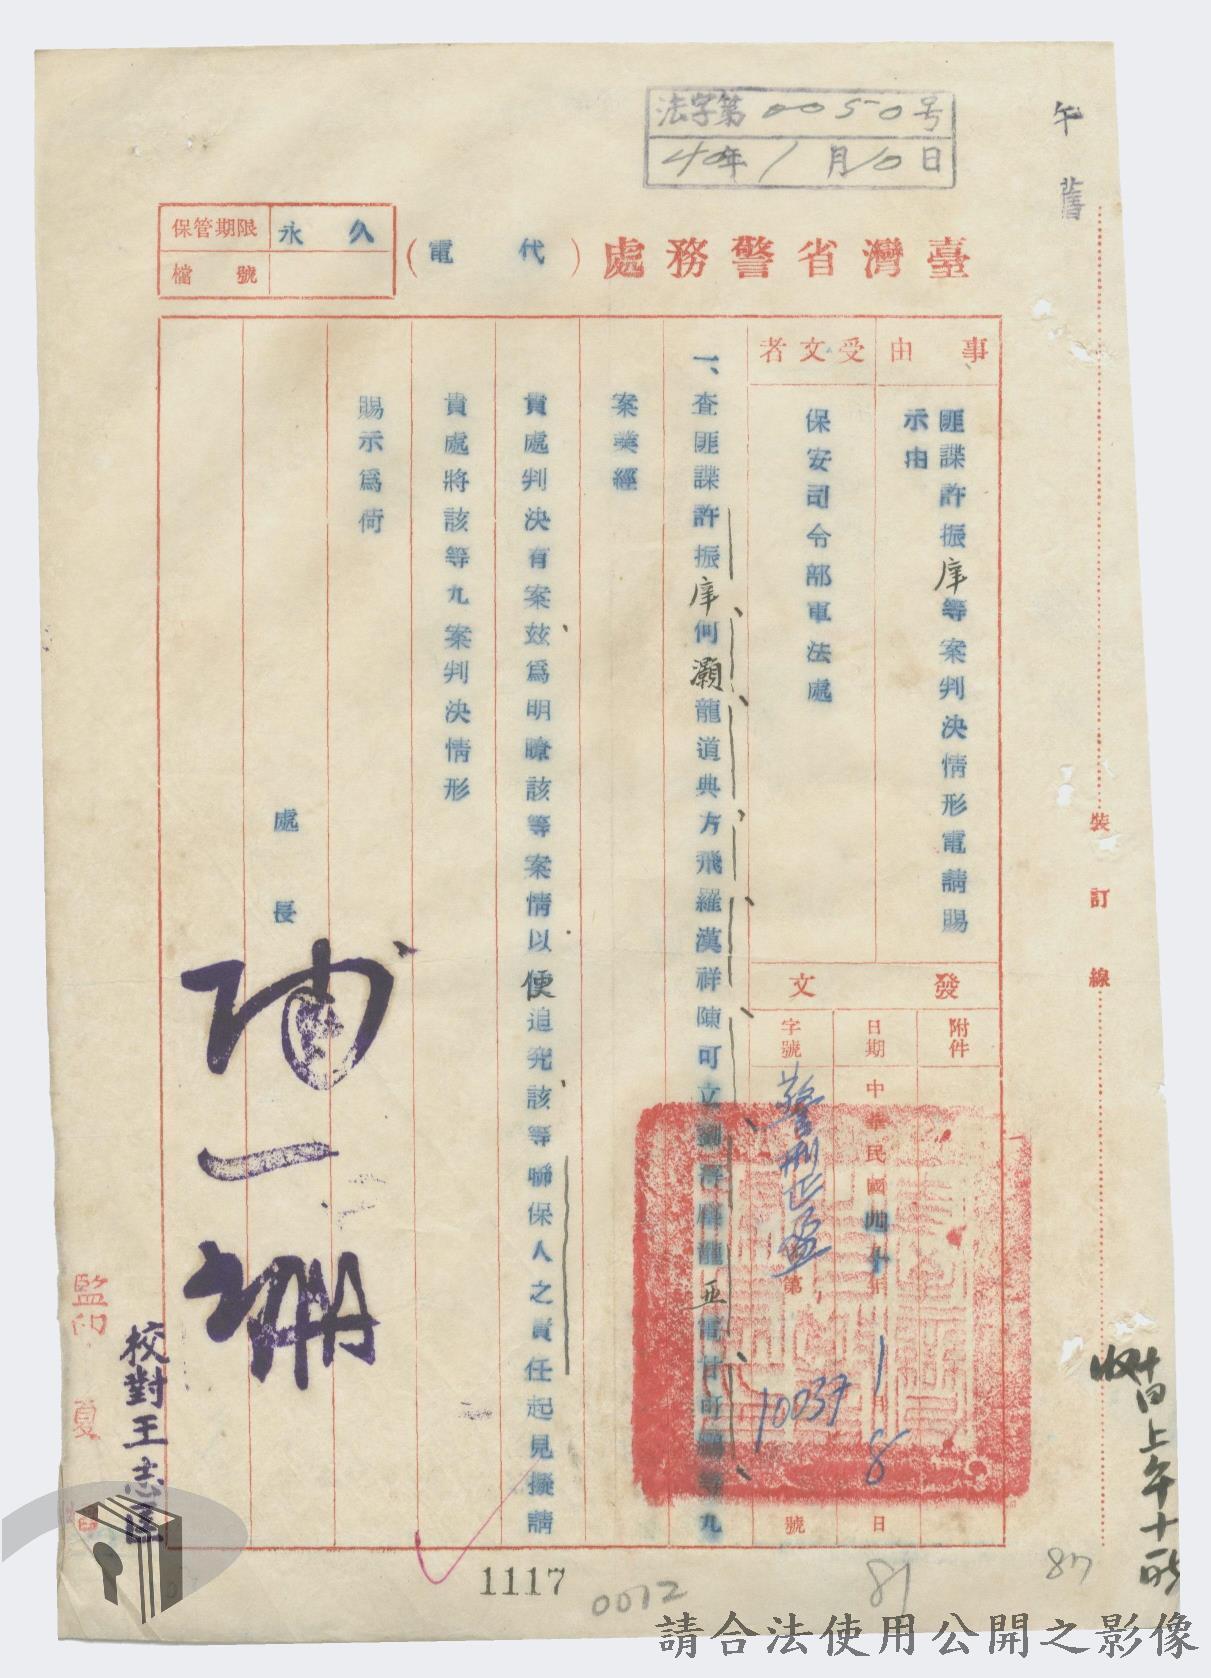 法字第0050号
40年1月10日
午
保管期限 永久
檔號
臺灣省警務處(代電)
事由
匪諜許振庠等案判決情形電請賜
示由
受文者
保安司令部軍法處
發文
附件
日期
中華民國四十年1月8日
字號
第10037號
一、查匪諜許振庠何灝龍道典方飛羅漢祥陳可立
等九
案業經
貴處判決有案玆爲明瞭該等案情以便追究該等聯保人之責任起見擬請
貴處將該等九案判決情形
賜示爲荷
處長
裝訂線
監印 夏
校對王志
上午十
1117
0072
81
87
請合法使用公開之影像